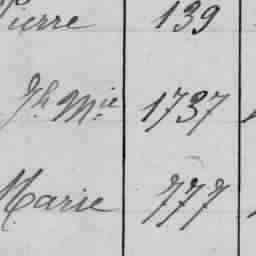 Pierre 139
Jh Mie 1737
Marie 777